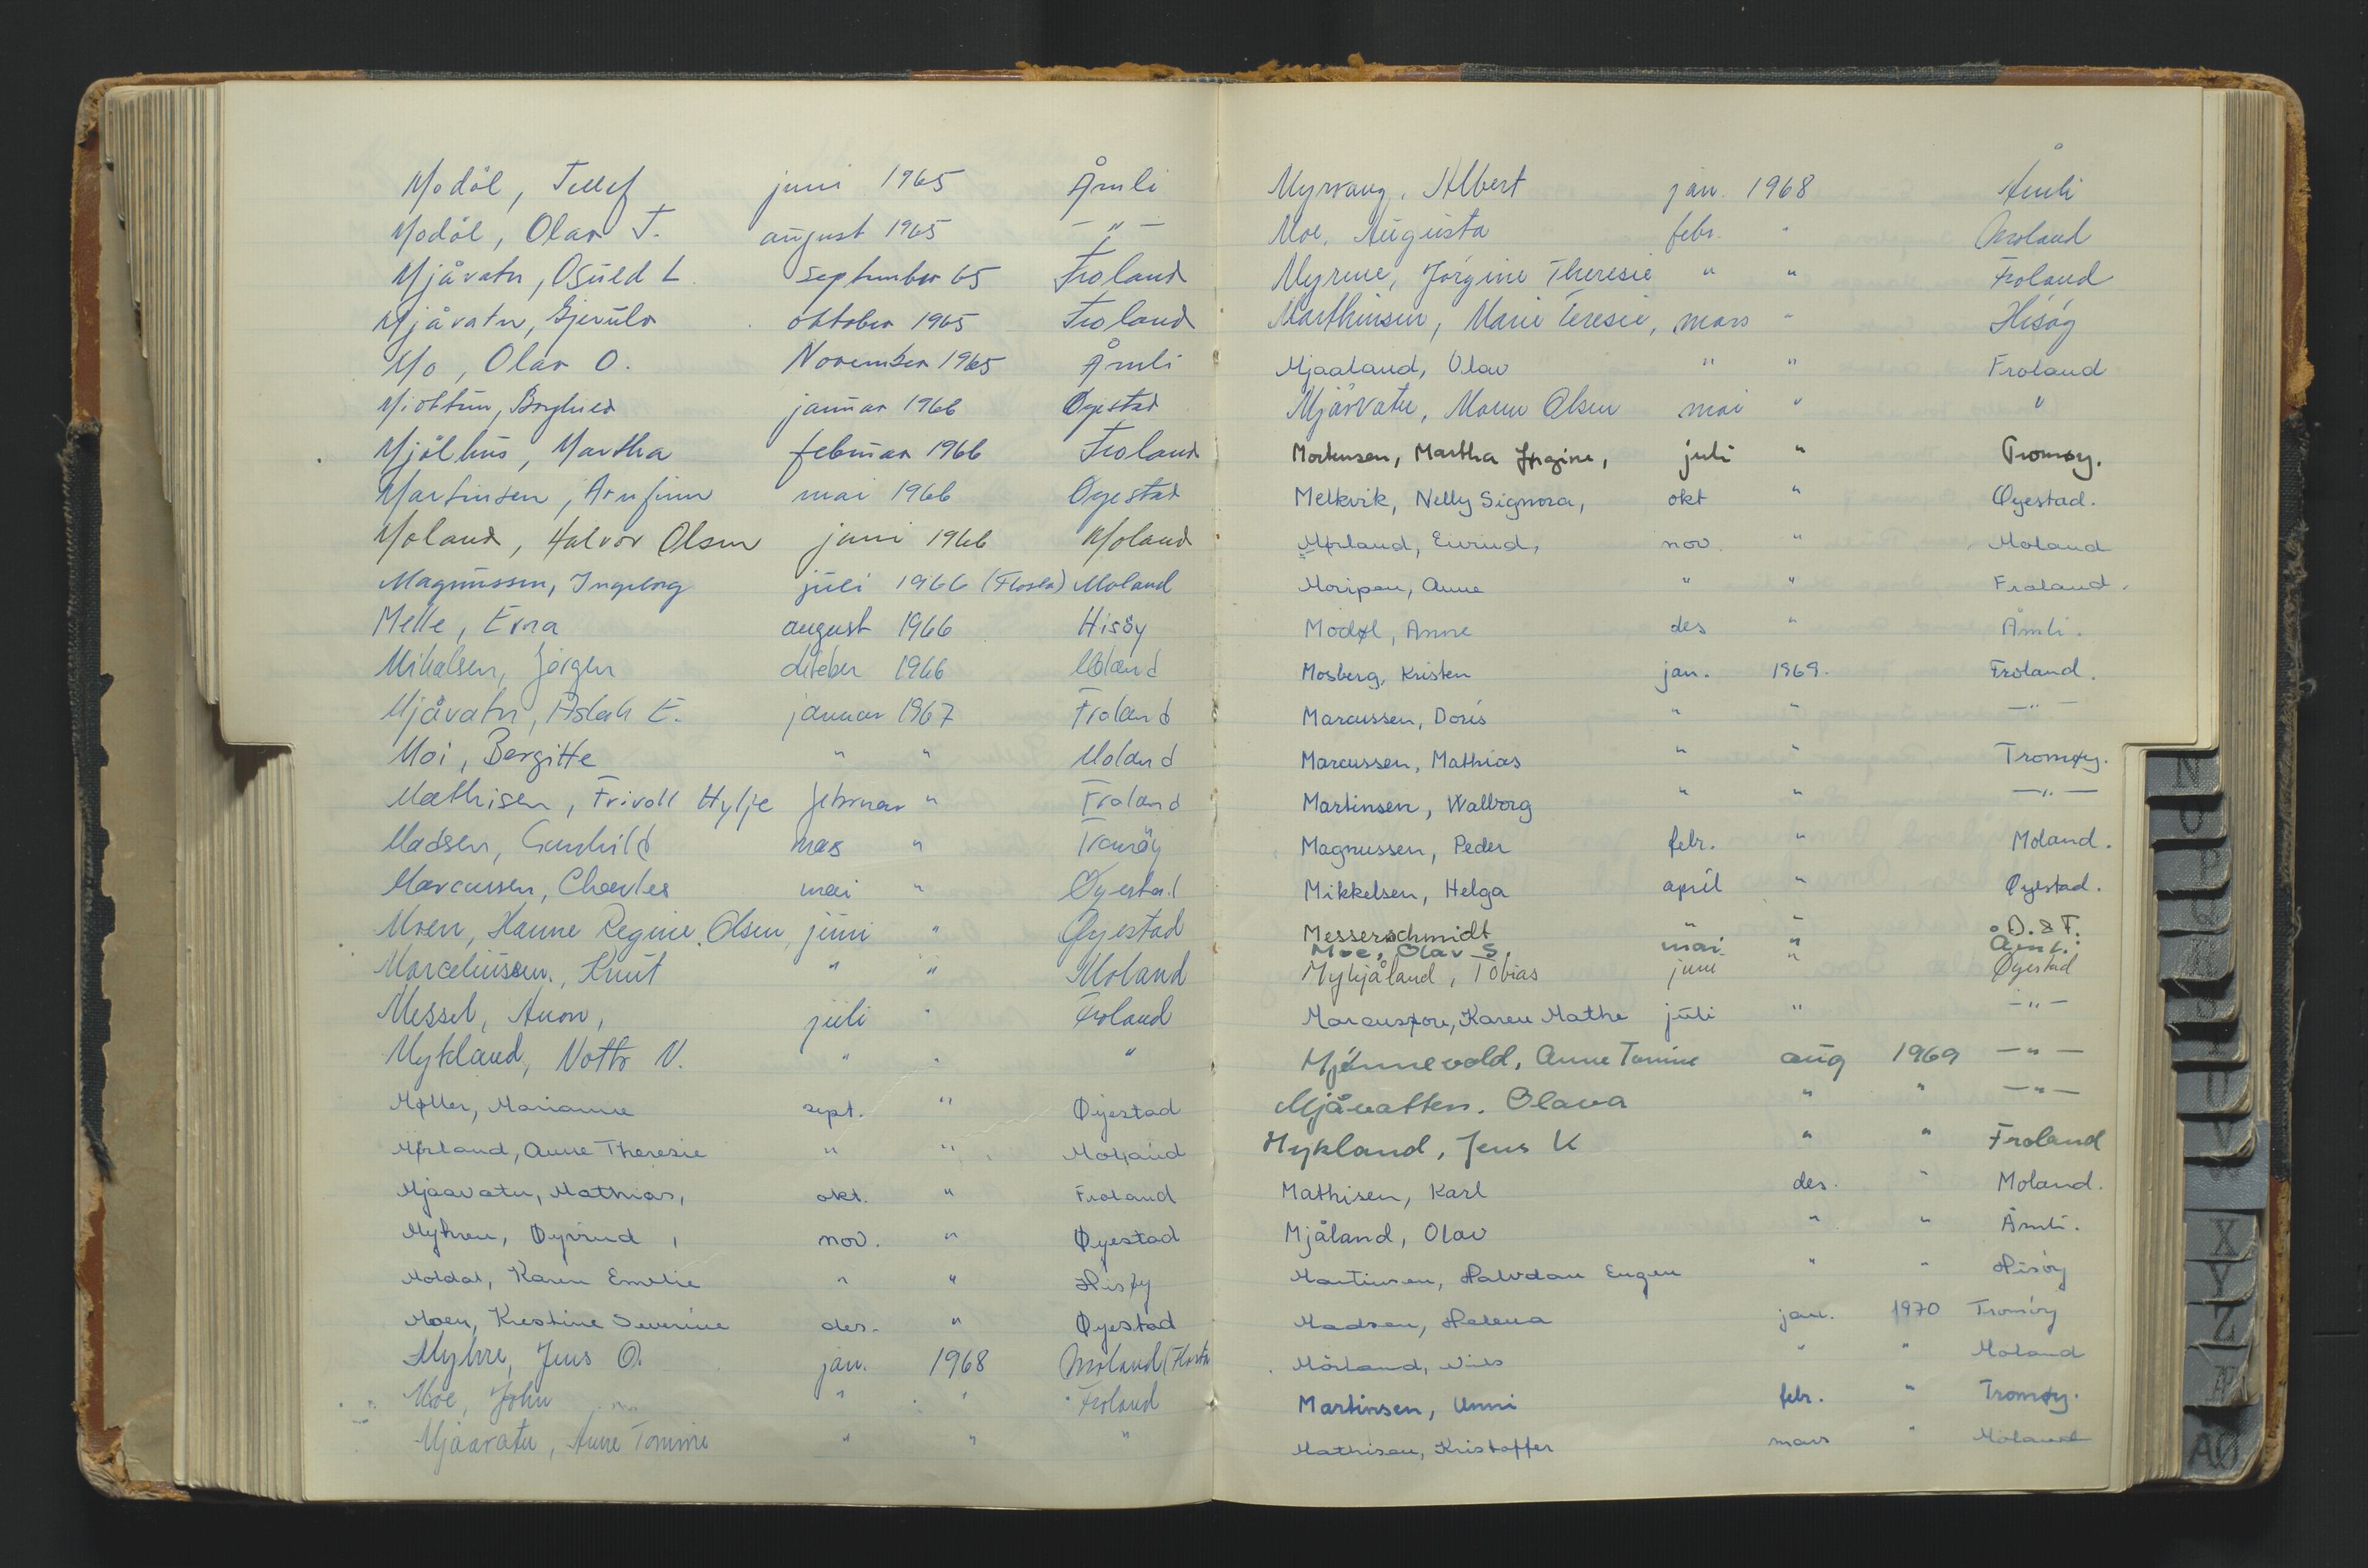 Modöl, Tellef juni 1965 Åmli
Modöl, Olav T. august 1965 — " —
Mjåvatn, Osuld L. september 65 Froland
Mjåvatn, Gjerulv oktober 1965 Froland
Mo, Olav O. November 1965 Åmli
januar 1966 Øyestad
Mjölhus, Martha februar 1966 Froland
Martinsen, Arnfinn mai 1966 Öyestad
Moland, Halvor Olsen juni 1966 Moland
Magnussen, Ingeborg juli 1966 (Flosta) Moland
Melle, Evra august 1966 Hisöy
Mikalsen, Jörgen oktober 1966 Moland
Mjåvatn, Aslak E. januar 1967 Froland
Moi, Bergitte " " Moland
Mathisen, Frivoll Hylje februar " Froland
Madsen, Gunhild mars " Tromöy
Marcussen, Charles mai " Øyestad
Moen, Hanne Regine Olsen, juni " Øyestad
Marceliussen, Knut " " Moland
Messel, Anon, juli " Froland
Mykland, Notto N. " " "
Møller, Marianne sept. " Øyestad
Mørland, Anne Theresie " " Moland
Mjaavatn, Mathias, okt. " Froland
Myhren, Øyvind, nov. " Øyestad
Moldal, Karen Emelie " " Hisøy
Moen, Kristine Severine des. " Øyestad
Myhre, Jens O. jan. 1968 Moland (Flosta
Moe, John " " Froland
Mjaavatn, Anne Tomine " " "
Myrvang, Albert jan. 1968 Åmli
Moe, Augusta febr. " Moland
Myrene, Jörgine Theresie " " Froland
Marthinsen, Marie Teresie, mars " Hisöy
Mjaaland, Olav " " Froland
Mjåvatn, Maren Olsen mai " "
Mortensen, Martha Jørgine, juli " Tromøy.
Melkvik, Nelly Signora, okt " Øyestad.
Mørland, Eivind, nov. " Moland
Moripen, Anne " " Froland.
Modøl, Anne des " Åmli.
Mosberg, Kristen jan. 1969. Froland.
Marcussen, Doris " " — " —
Marcussen, Mathias " " Tromøy.
Martinsen, Walborg " " — " —
Magnussen, Peder febr. " Moland.
Mikkelsen, Helga april " Øyestad.
Messerschmidt " " D. & F.
Moe, Olav S. mai " Åmli.
Myhjåland, Tobias juni " Øyestad
Karen Mathe juli " — " —
Mjönnevold, Anne Tomine aug 1969 — " —
Mjåvatten. Olava " " — " —
Mykland, Jens K " " Froland
Mathisen, Karl des. " Moland.
Mjåland, Olav " " Åmli.
Martinsen, Halvdan Eugen " " Hisöy
Madsen, Helena jan. 1970 Tromöy
Mörland, Nils " " Moland
Martinsen, Unni febr. " Tromøy.
Mathisen, Kristoffer mars " Moland
N
O
P
Q
R
S
T
U
V
W
X
Y
Z
Æ
AØ